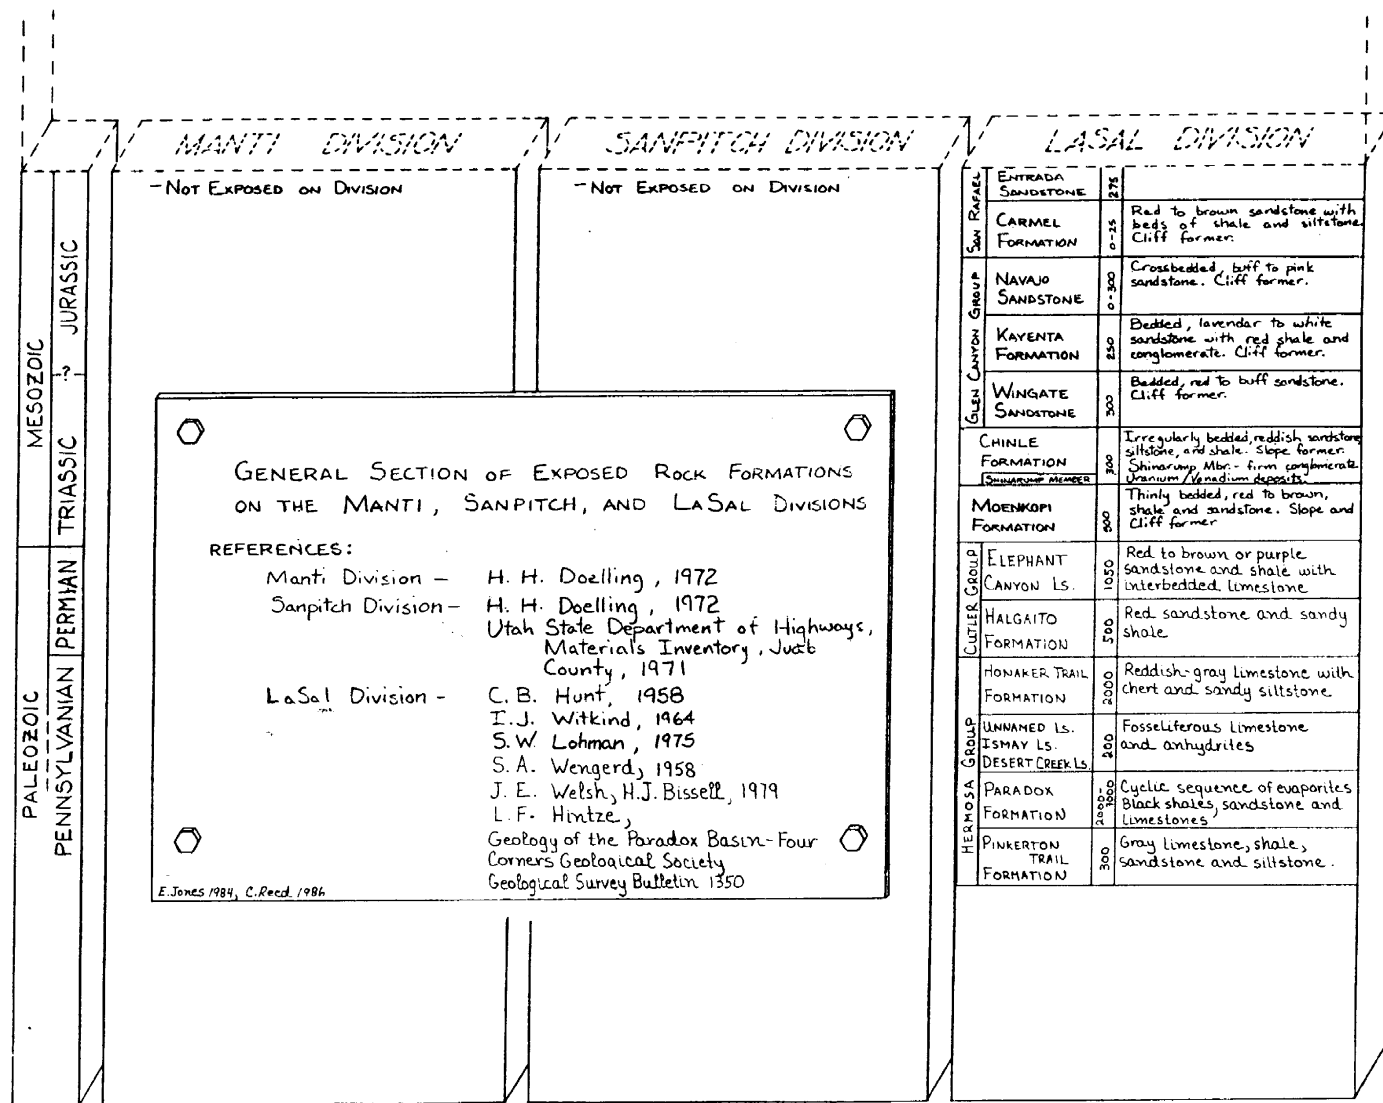 MANTI DIVISION
SANPITCH DIVISION
LASAL DIVISION
MESOZOIC
JURASSIC
-?-
TRIASSIC
PALEOZOIC
PERMIAN
PENNSYLVANIAN
- NOT EXPOSED ON DIVISION
- NOT EXPOSED ON DIVISION
GENERAL SECTION OF EXPOSED ROCK FORMATIONS
ON THE MANTI, SANPITCH, AND LASAL DIVISIONS
REFERENCES:
Manti Division - H. H. Doelling, 1972
Sanpitch Division - H. H. Doelling, 1972
Utah State Department of Highways,
Materials Inventory, Juab
County, 1971
LaSal Division - C. B. Hunt, 1958
I.J. Witkind, 1964
S.W. Lohman, 1975
S. A. Wengerd, 1958
J. E. Welsh, H.J. Bissell, 1979
L.F. Hintze,
Geology of the Paradox Basin-Four
Corners Geological Society
Geological Survey Bulletin 1350
E.Jones 1984, C.Reed 1986
SAN RAFAEL
ENTRADA
SANDSTONE
275
CARMEL
FORMATION
0-25
Red to brown sandstone with
beds of shale and siltstone.
Cliff former.
GLEN CANYON GROUP
NAVAJO
SANDSTONE
0-300
Crossbedded, buff to pink
sandstone. Cliff former.
KAYENTA
FORMATION
250
Bedded, lavendar to white
sandstone with red shale and
conglomerate. Cliff former.
WINGATE
SANDSTONE
300
Bedded, red to buff sandstone.
Cliff former.
CHINLE
FORMATION
SHINARUMP MEMBER
300
Irregularly bedded, reddish sandstone,
siltstone, and shale. Slope former.
Shinarump Mbr.- firm conglomerate
Uranium/Vanadium deposits.
MOENKOPI
FORMATION
500
Thinly bedded, red to brown,
shale and sandstone. Slope and
Cliff former
CUTLER GROUP
ELEPHANT
CANYON LS.
1050
Red to brown or purple
sandstone and shale with
interbedded limestone
HALGAITO
FORMATION
500
Red sandstone and sandy
shale
HERMOSA GROUP
HONAKER TRAIL
FORMATION
2000
Reddish-gray limestone with
chert and sandy siltstone
UNNAMED LS.
ISMAY LS.
DESERT CREEK LS.
200
Fosseliferous limestone
and anhydrites
PARADOX
FORMATION
2000-
3000
Cyclic sequence of evaporites
Black shales, sandstone and
limestones
PINKERTON
TRAIL
FORMATION
300
Gray limestone, shale,
sandstone and siltstone.